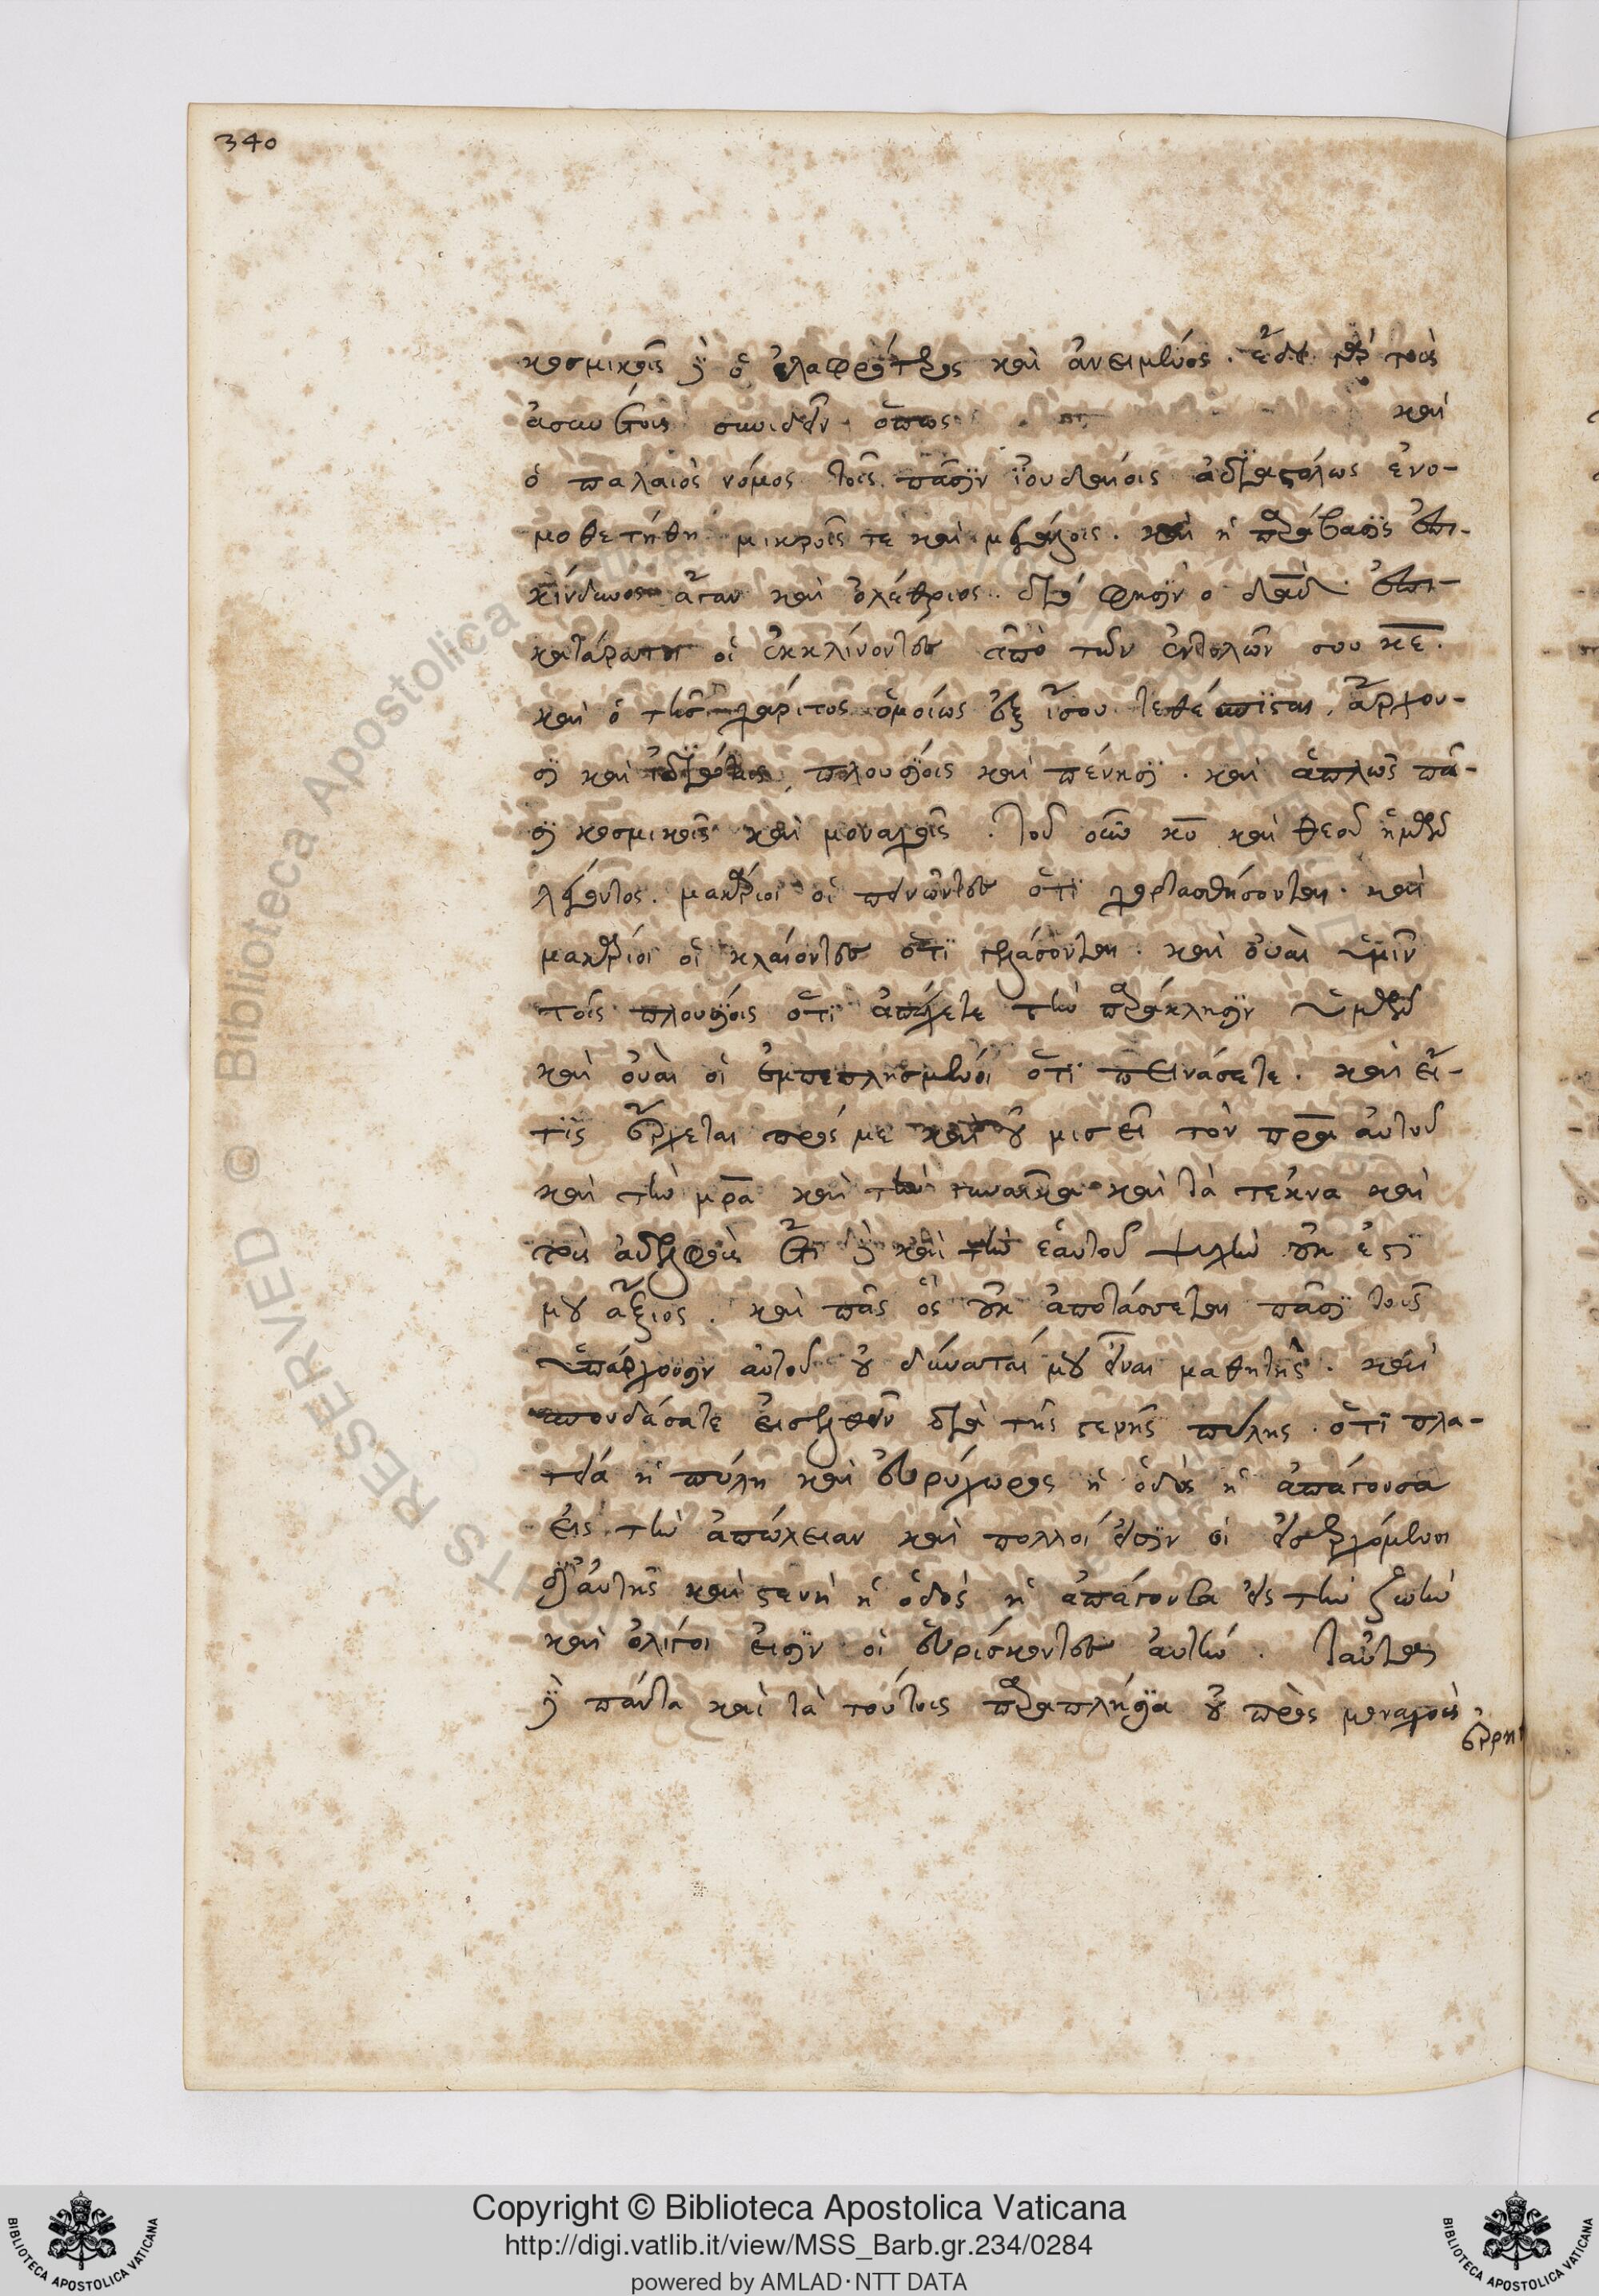 340
κοσμικοῖς δὲ ὁ ἐλαφρότερος καὶ ἀνειμένος. ἔδει γὰρ τοὺς
ἀσυνέτους συνιδεῖν ὅπως καὶ
ὁ παλαιὸς νόμος τοῖς πᾶσιν ἰουδαίοις ἀδιαστόλως ἐνο-
μοθετήθη μικροῖς τε καὶ μεγάλοις. καὶ ἡ παράβασις ἐπι-
κίνδυνος ἄγαν καὶ ὀλέθριος. διό φησιν ὁ δαδ ἐπι-
κατάρατοι οἱ ἐκκλίνοντες ἀπὸ τῶν ἐντολῶν σου κε.
καὶ ὁ τῆς χάριτος ὁμοίως ἐξ ἴσου τεθέσπισται, ἄρχου-
σι καὶ ἰδιώταις, πλουσίοις καὶ πένησι. καὶ ἁπλῶς πᾶ-
σι κοσμικοῖς καὶ μοναχοῖς. τοῦ οὖν κυ καὶ θεοῦ ἡμῶν
λέγοντος. μακάριοι οἱ πεινῶντες ὅτι χορτασθήσονται. καὶ
μακάριοι οἱ κλαίοντες ὅτι γελάσονται. καὶ οὐαὶ ὑμῖν
τοῖς πλουσίοις ὅτι ἀπέχετε τὴν παράκλησιν ὑμῶν
καὶ οὐαὶ οἱ ἐμπεπλησμένοι ὅτι πεινάσετε. καὶ εἴ-
τις ἔρχεται πρός με καὶ οὐ μισεῖ τὸν πρα αὐτοῦ
καὶ τὴν μρα καὶ τὴν γυναῖκα καὶ τὰ τέκνα καὶ
τοὺς ἀδελφοὺς ἔτι δὲ καὶ τὴν ἑαυτοῦ ψυχὴν οὐκ ἔστι
μου ἄξιος. καὶ πᾶς ὃς οὐκ ἀποτάσσεται πᾶσι τοῖς
ὑπάρχουσιν αὐτοῦ οὐ δύναταί μου εἶναι μαθητής. καὶ
σπουδάσατε εἰσελθεῖν διὰ τῆς στενῆς πύλης. ὅτι πλα-
τεῖα ἡ πύλη καὶ εὐρύχωρος ἡ ὁδὸς ἡ ἀπάγουσα
εἰς τὴν ἀπώλειαν καὶ πολλοί εἰσιν οἱ εἰσερχόμενοι
δι' αὐτῆς καὶ στενὴ ἡ ὁδὸς ἡ ἀπάγουσα εἰς τὴν ζωὴν
καὶ ὀλίγοι εἰσὶν οἱ εὑρίσκοντες αὐτήν. ταῦτα
δὲ πάντα καὶ τὰ τούτοις παραπλήσια οὐ πρὸς μοναχοὺς
ἐρρη
RIGHTS RESERVED © Biblioteca Apostolica
Copyright © Biblioteca Apostolica Vaticana
http://digi.vatlib.it/view/MSS_Barb.gr.234/0284
powered by AMLAD·NTT DATA
BIBLIOTECA APOSTOLICA VATICANA
BIBLIOTECA APOSTOLICA VATICANA